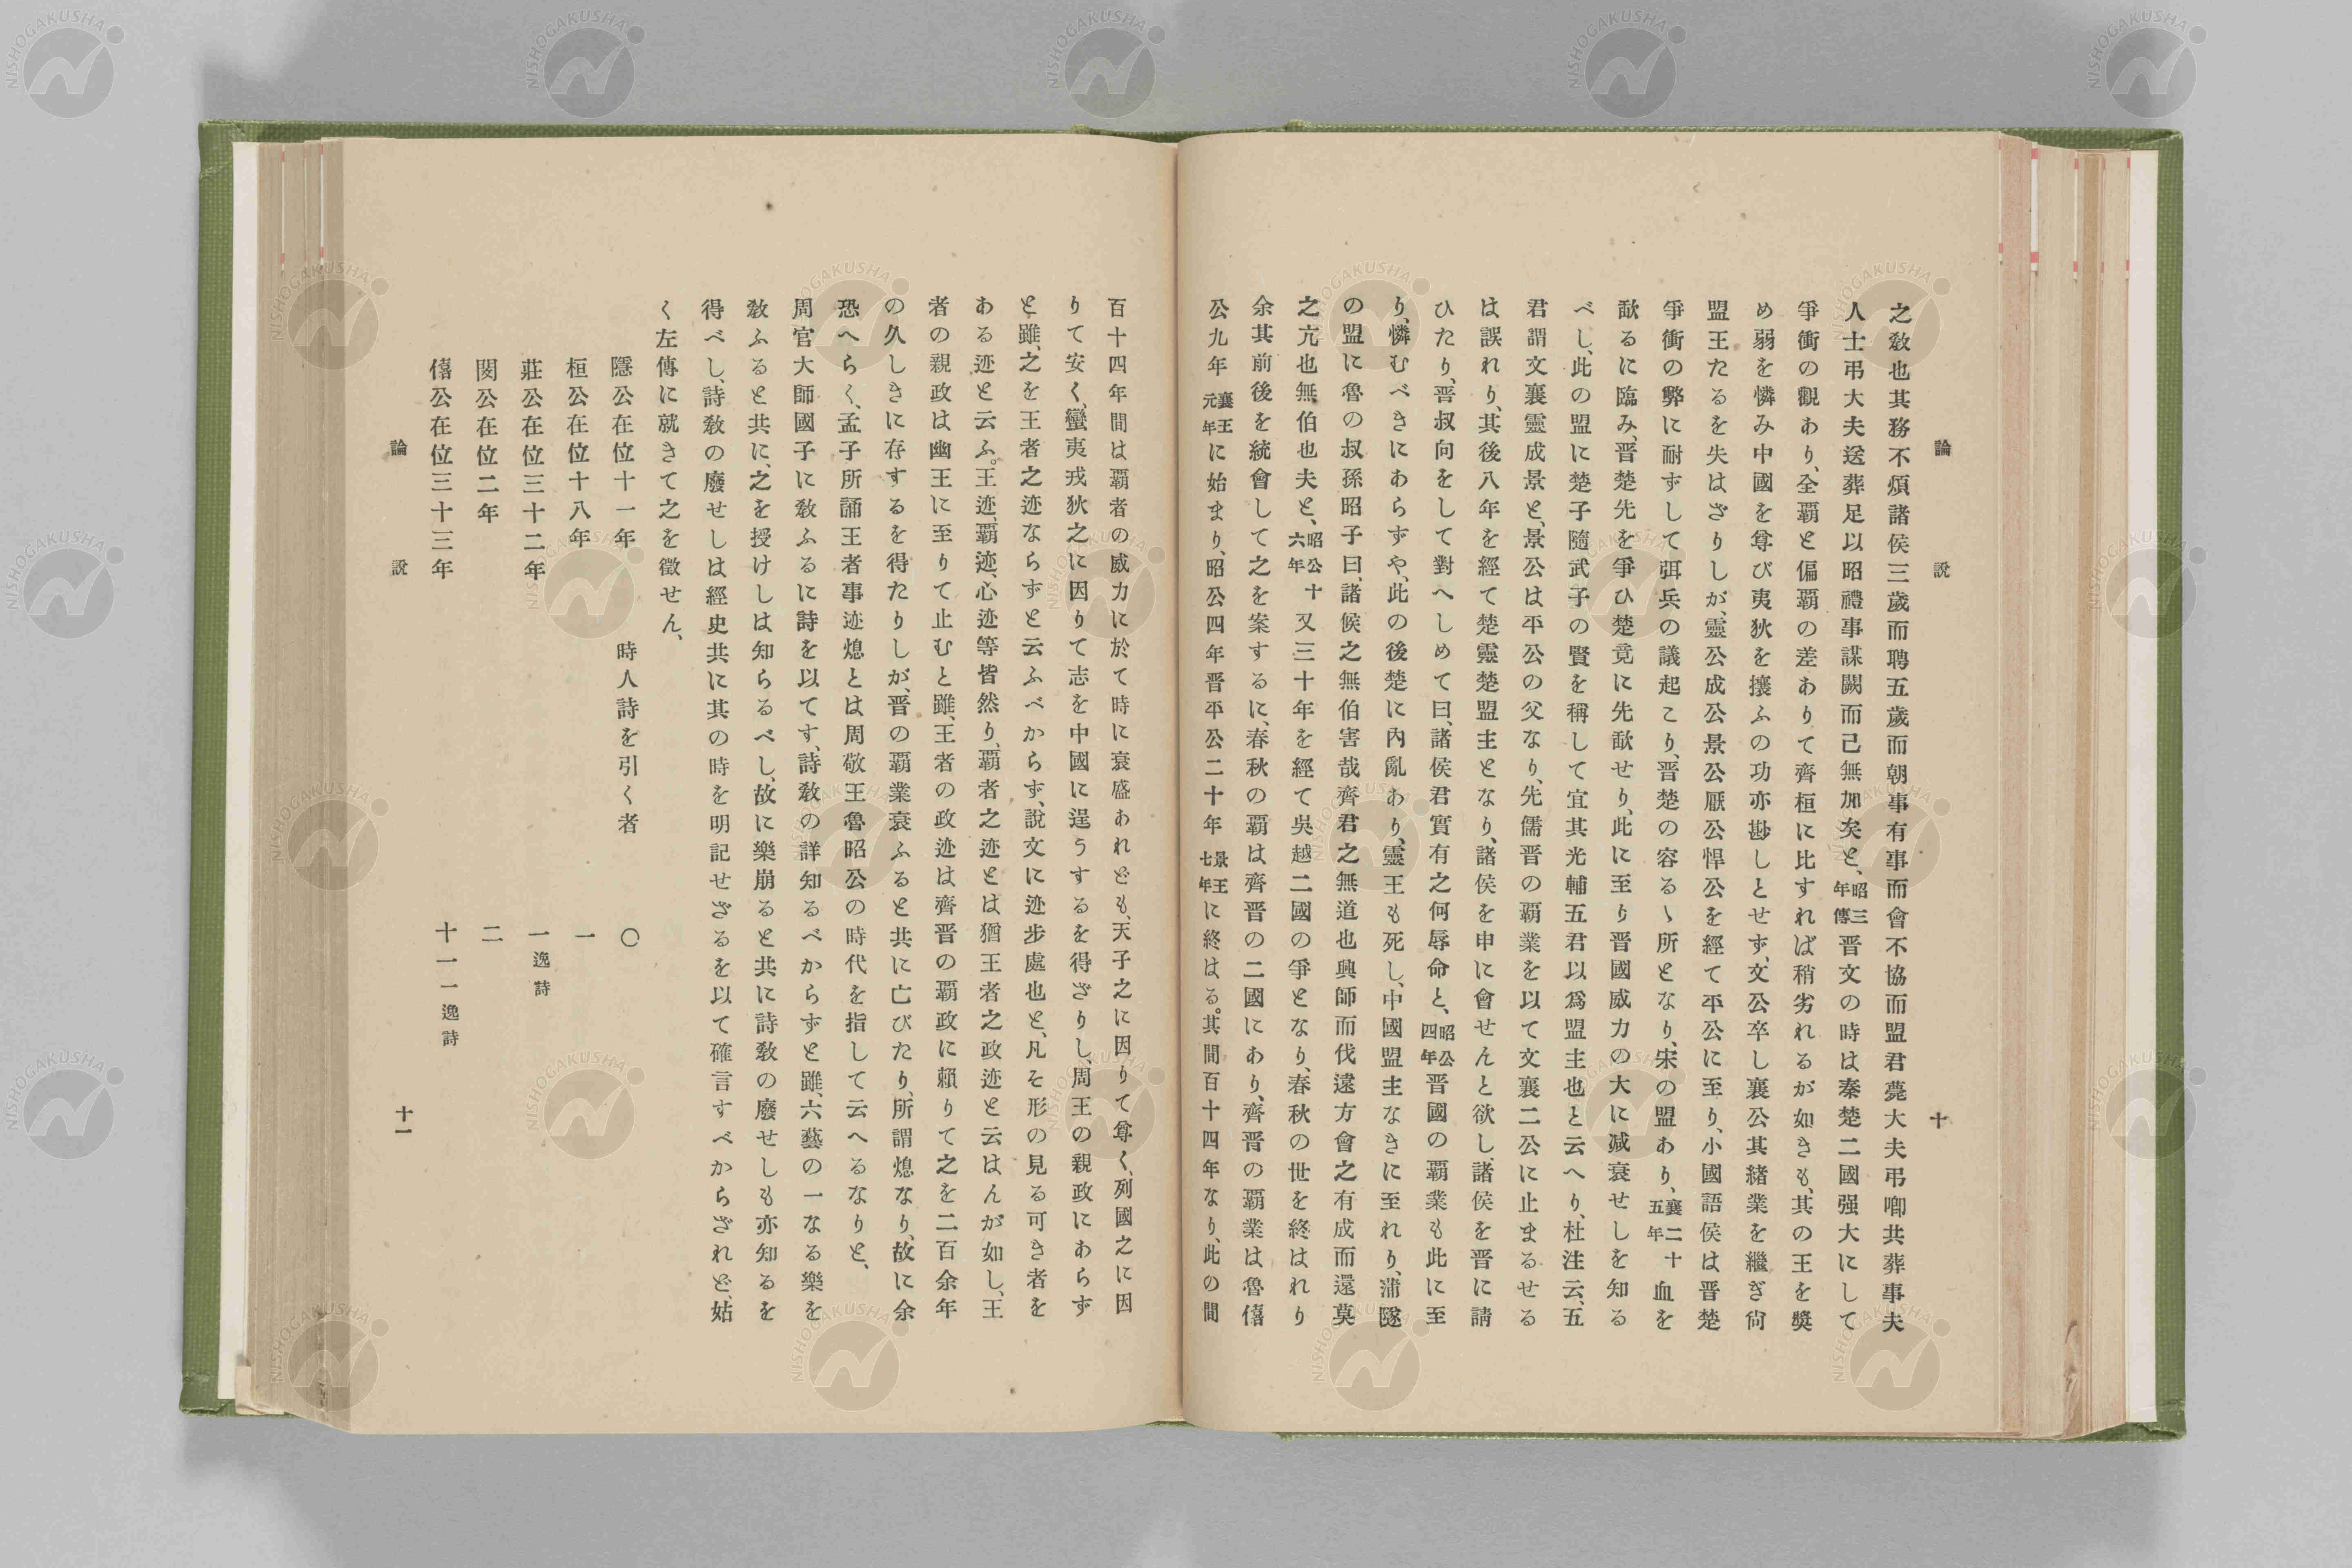 論說
十
之敎也其務不煩諸侯三歲而聘五歲而朝事有事而會不協而盟君薨大夫弔喞共葬事夫
人士弔大夫送葬足以昭禮事謀闕而己無加矣と、昭三年傳晋文の時は秦楚二國强大にして
爭衝の觀あり、全覇と偏覇の差ありて齊桓に比すれば稍劣れるが如きも、其の王を奬
め弱を憐み中國を尊び夷狄を攘ふの功亦尠しとせず、文公卒し襄公其緒業を繼ぎ尙
盟王たるを失はざりしが、靈公成公景公厭公悍公を經て平公に至り、小國語侯は晋楚
爭衝の弊に耐ずして弭兵の議起こり、晋楚の容るゝ所となり、宋の盟あり、襄二十五年血を
歃るに臨み、晋楚先を爭ひ楚竟に先歃せり、此に至り晋國威力の大に减衰せしを知る
べし、此の盟に楚子隨武子の賢を稱して宜其光輔五君以爲盟主也と云へり、杜注云、五
君謂文襄靈成景と、景公は平公の父なり、先儒晋の覇業を以て文襄二公に止まるせる
は誤れり、其後八年を經て楚靈楚盟主となり、諸侯を申に會せんと欲し、諸侯を晋に請
ひたり、晋叔向をして對へしめて曰、諸侯君實有之何辱命と、昭公四年晋國の覇業も此に至
り、憐むべきにあらずや、此の後楚に內亂あり、靈王も死し、中國盟主なきに至れり、蒲隧
の盟に魯の叔孫昭子曰、諸候之無伯害哉齊君之無道也興師而伐遠方會之有成而還莫
之亢也無伯也夫と、昭公十六年又三十年を經て吳越二國の爭となり、春秋の世を終はれり
余其前後を統會して之を案するに、春秋の覇は齊晋の二國にあり、齊晋の覇業は魯僖
公九年襄王元年に始まり、昭公四年晋平公二十年景王七年に終はる。其間百十四年なり、此の間
百十四年間は覇者の威力に於て時に衰盛あれども、天子之に因りて尊く、列國之に因
りて安く、蠻夷戎狄之に因りて志を中國に逞うするを得ざりし、周王の親政にあらず
と雖、之を王者之迹ならずと云ふべからず、說文に迹步處也と、凡そ形の見る可き者を
ある迹と云ふ。王迹、覇迹、心迹等皆然り、覇者之迹とは猶王者之政迹と云はんが如し、王
者の親政は幽王に至りて止むと雖、王者の政迹は齊晋の覇政に賴りて之を二百余年
の久しきに存するを得たりしが、晋の覇業衰ふると共に亡びたり、所謂熄なり、故に余
恐へらく、孟子所誦王者事迹熄とは周敬王魯昭公の時代を指して云へるなりと、
周官大師國子に敎ふるに詩を以てす、詩敎の詳知るべからずと雖、六藝の一なる樂を
敎ふると共に、之を授けしは知らるべし、故に樂崩ると共に詩敎の廢せしも亦知るを
得べし、詩敎の廢せしは經史共に其の時を明記せざるを以て確言すべからざれど、姑
く左傳に就きて之を徵せん、
時人詩を引く者
隱公在位十一年　〇
桓公在位十八年　一
莊公在位三十二年　一逸詩
閔公在位二年　二
僖公在位三十三年　十一一逸詩
論說
十一
NISHOGAKUSHA